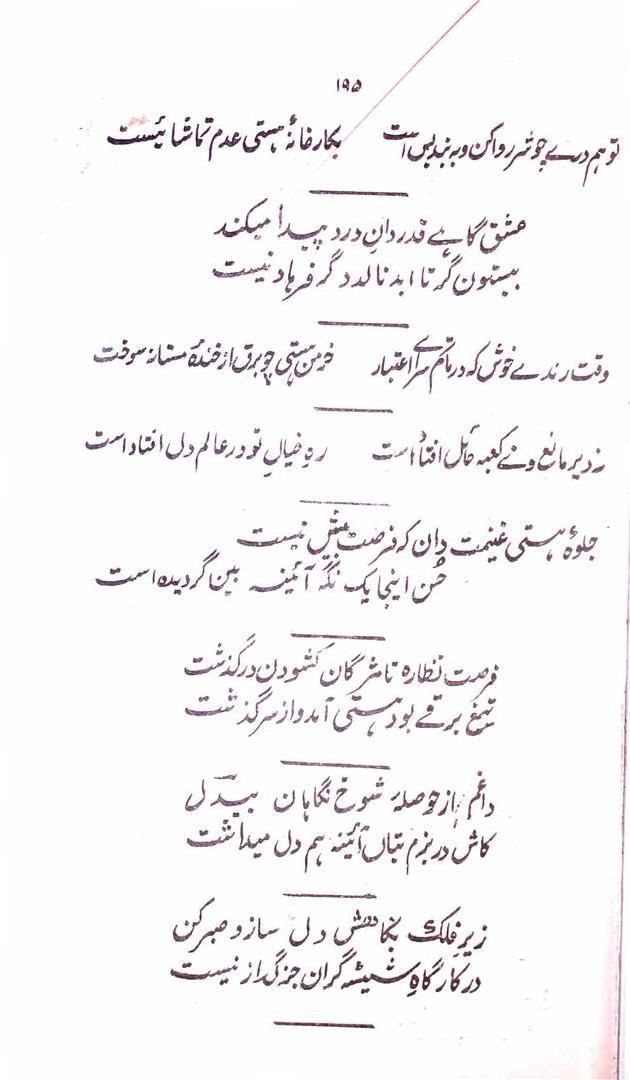 ۱۹۵
تو ہم درے چو شرر وا کن و بہ بند بس است بکارخانۂ ہستی عدم تماشائیست
عشق گاہے قدردانِ درد پیدا میکند
بیستون گر تا ابد نالد دگر فرہاد نیست
وقت رندے خوش کہ در ماتم سرائے اعتبار خرمن ہستی چو برق از خندۂ مستانہ سوخت
نہ دیر مانع و نے کعبہ حائل افتاد است رہِ خیالِ تو در عالم دل افتاد است
جلوۂ ہستی غنیمت دان کہ فرصت بیش نیست
حُسن اینجا یک نگہ آئینہ بین گردیدہ است
فرصت نظارہ تا مژگان کشودن درگذشت
تیغ برقے بود ہستی آمد و از سر گذشت
داغم از حوصلۂ شوخ نگاہان بیدل
کاش در بزم بتاں آئینہ ہم دل میداشت
زیرِ فلک بکاهش دل ساز و صبر کن
در کارگاہِ شیشہ گران جز گداز نیست